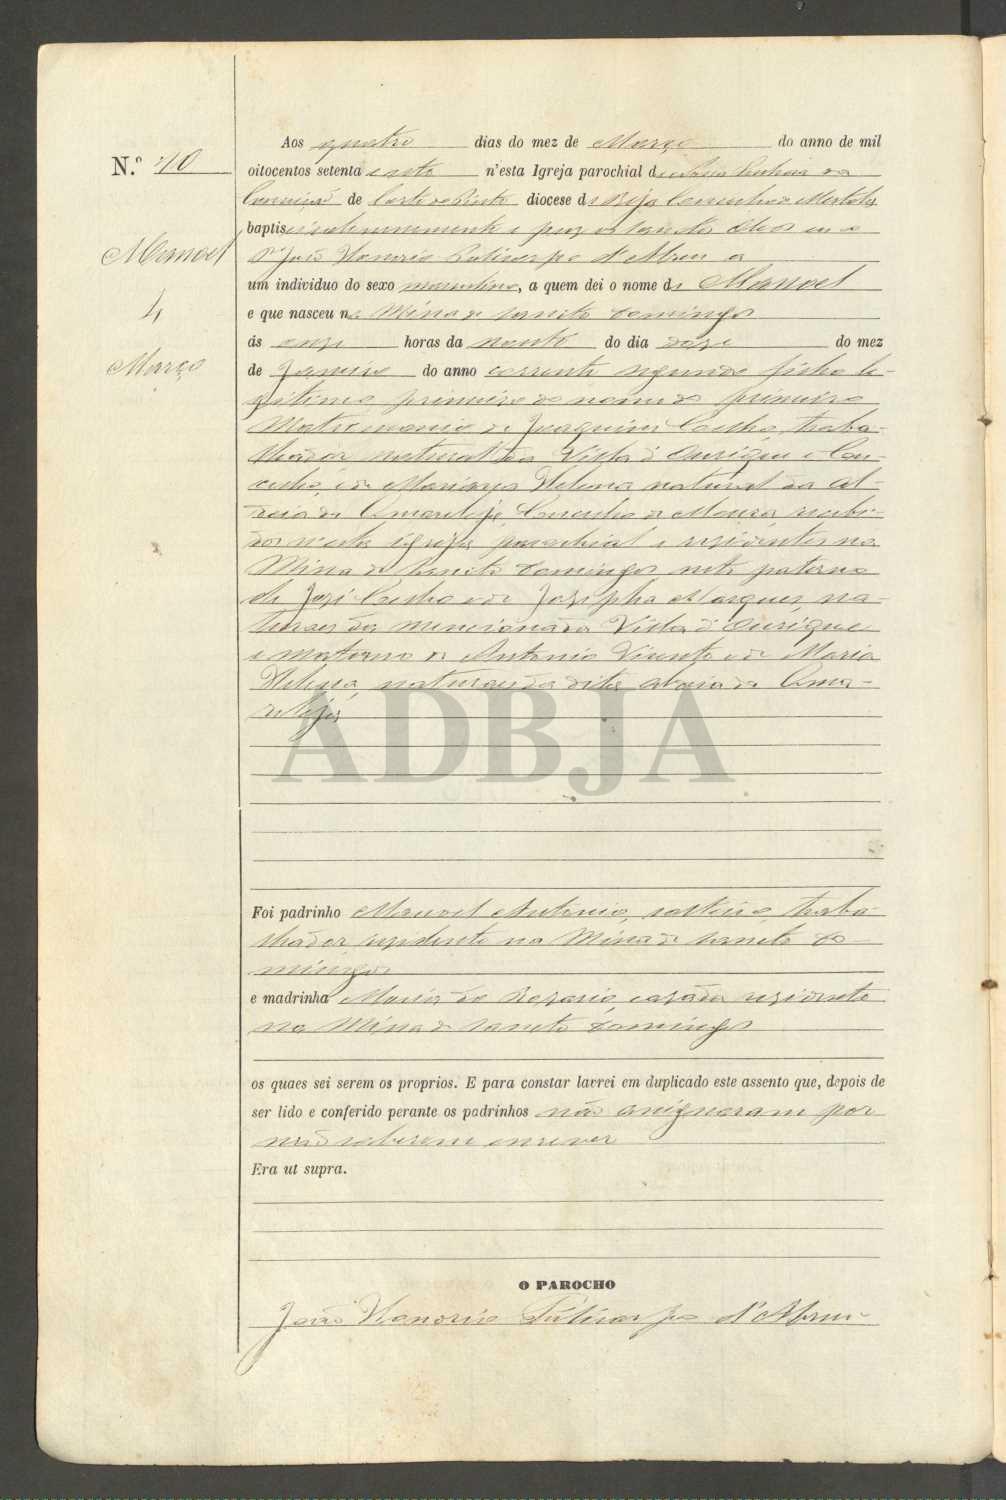 N.º 40
Manoel
4
Março
Aos quatro dias do mez de Março do anno de mil
oitocentos setenta e n'esta Igreja parochial de Nossa Senhora da
Conceição de Corte do Pinto diocese de Beja Concelho de Mertola
baptisei solemnemente e puz os sanctos oleos eu o
João Honorio Policarpo d'Abreu a
um individuo do sexo masculino, a quem dei o nome de Manoel
e que nasceu na Mina de sancto Domingos
ás onze horas da noute do dia doze do mez
de Janeiro do anno corrente segundo filho le-
gitimo primeiro do nome do primeiro
Matrimonio de Joaquim Coelho, traba-
lhador natural da Villa d'Ourique e Con-
celho, e de Marianna Helena natural da Al-
deia da Amareleja, Concelho de Moura recebi-
dos nesta igreja parochial e residentes na
Mina de Sancto Domingos neto paterno
de José Coelho e de Josepha Marques, na-
turaes da mencionada Villa d'Ourique
e materno de Antonio Vicente e de Maria
Helena, naturaes da dita aldeia da Ama-
releja
ADBJA
Foi padrinho Manoel Antonio, solteiro, traba-
lhador residente na Mina de sancto Do-
mingos
e madrinha Maria do Rozario, cazada rezidente
na Mina de sancto Domingos
os quaes sei serem os proprios. E para constar lavrei em duplicado este assento que, depois de
ser lido e conferido perante os padrinhos não assignaram por
não saberem escrever
Era ut supra.
O PAROCHO
João Honorio Policarpo d'Abreu